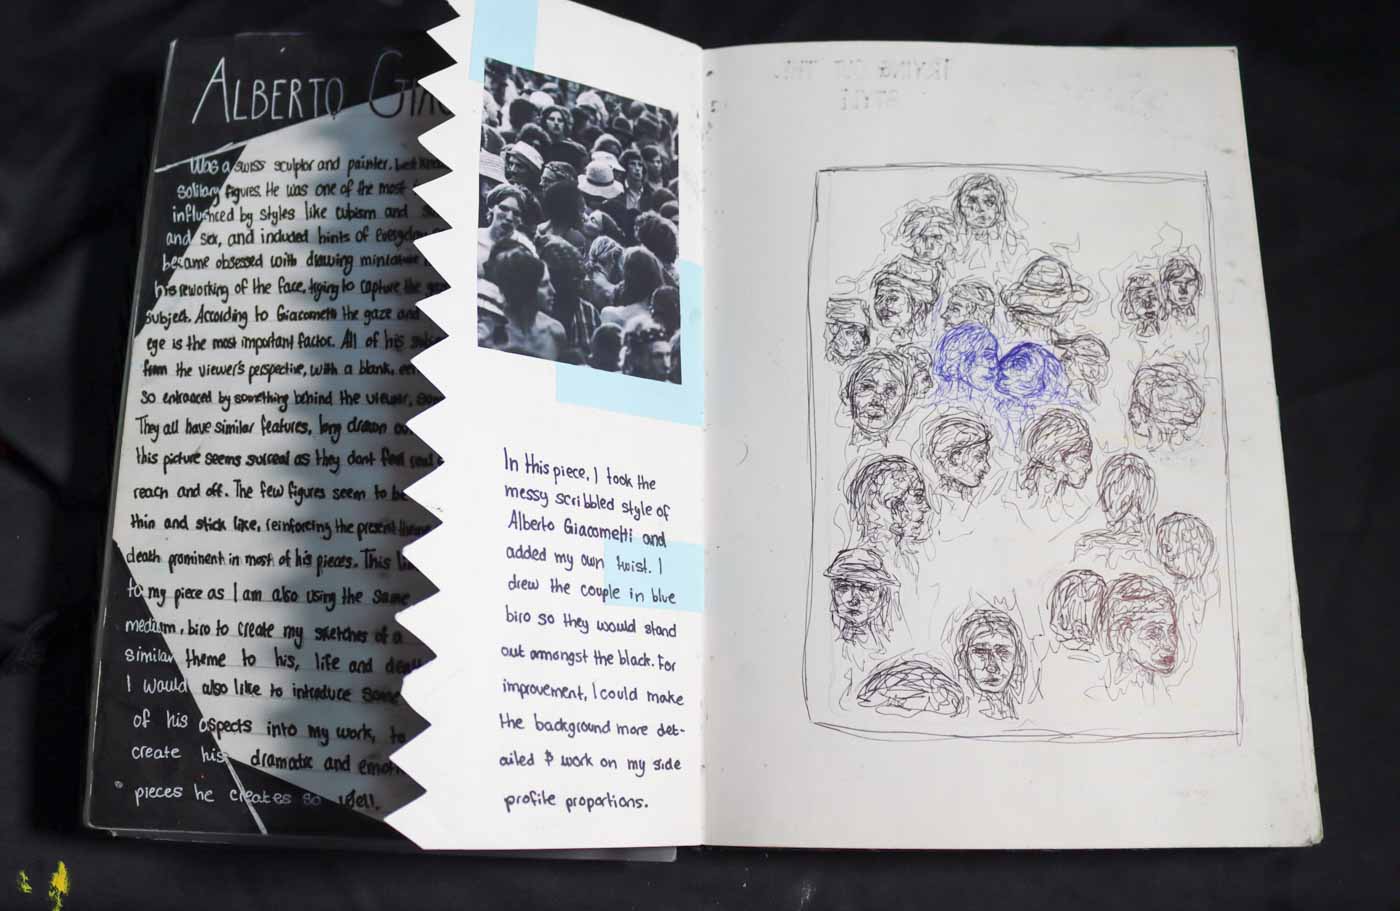 ALBERTO GIAC
Was a swiss sculptor and painter. best
solitary figures. He was one of the most
influenced by styles like cubism and
and sex, and included hints of everyday
became obsessed with drawing miniature
his reworking of the face, trying to capture the
subject. According to Giacometti the gaze and
eye is the most important factor. All of his
from the viewer's perspective, with a blank,
so entranced by something behind the viewer,
They all have similar features, long drawn
this picture seems surreal as they dont feel real
reach and off. The few figures seem to be
thin and stick like, reinforcing the present theme
death prominent in most of his pieces. This
to my piece as I am also using the same
medium, biro to create my sketches of a
similar theme to his, life and death
I would also like to introduce some
of his aspects into my work, to
create his dramatic and
pieces he creates so well.
In this piece, I took the
messy scribbled style of
Alberto Giacometti and
added my own twist. I
drew the couple in blue
biro so they would stand
out amongst the black. For
improvement, I could make
the background more det-
ailed & work on my side
profile proportions.